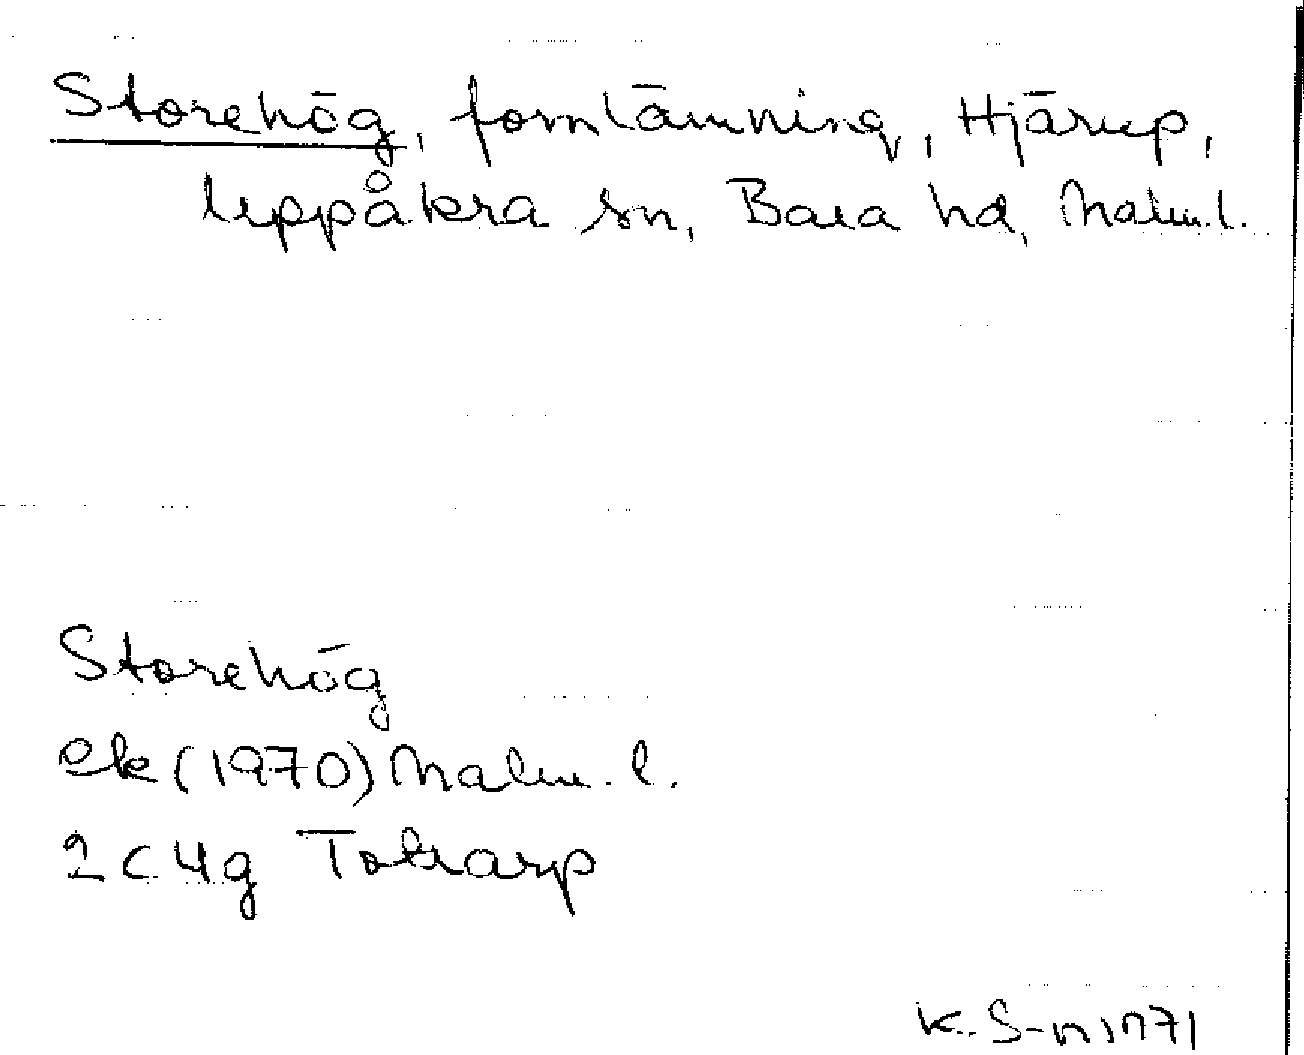 Storehög, fornlämning, Hjärup,
Uppåkra sn, Bara hd, Malm.l.
Storehög
ek (1970) Malm. l.
2C4g Tottarp
K. S-n 1971